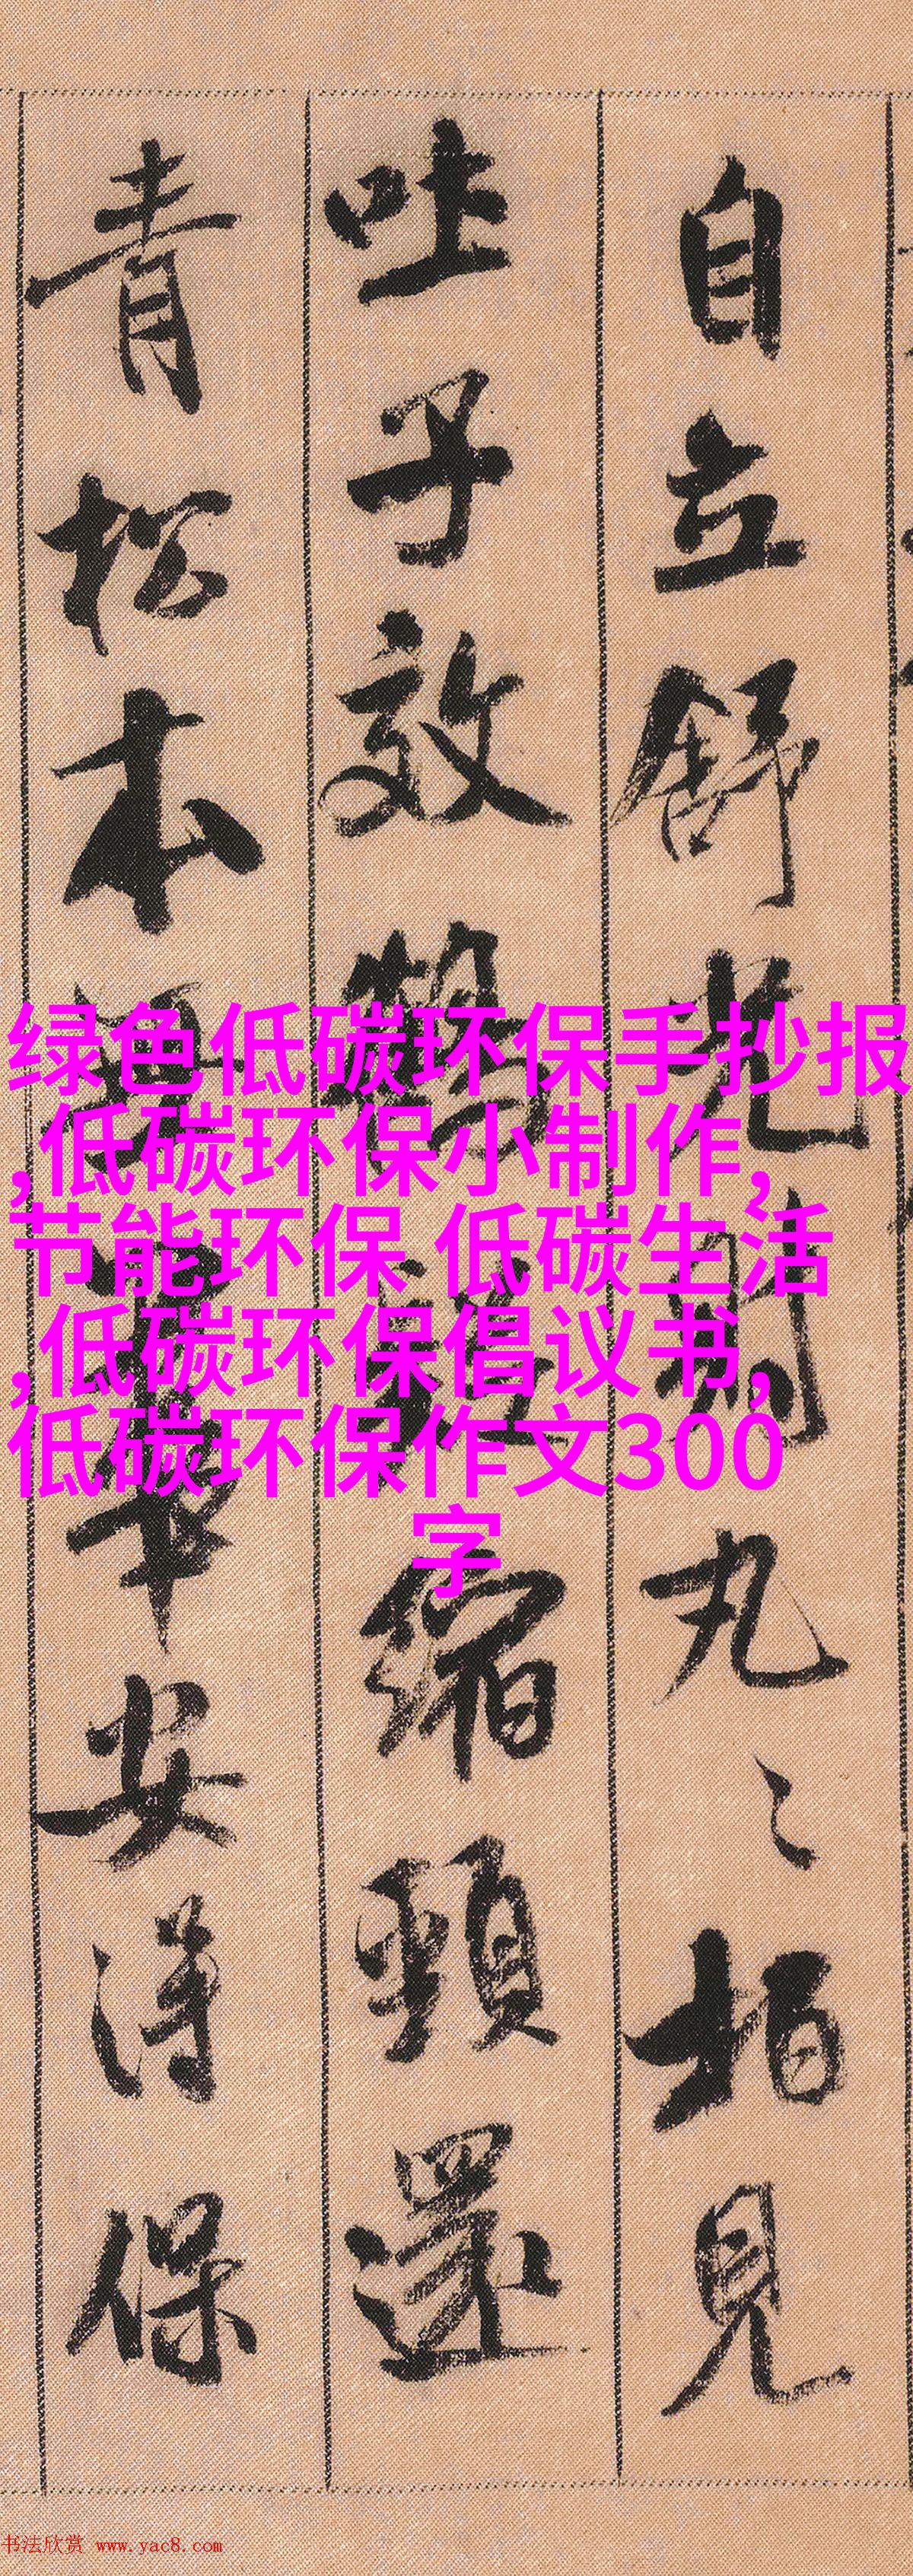 自立舒光射丸〻柏見
吐子效鶴疑縮頸還
青松本無華安得保
绿色低碳环保手抄报
,低碳环保小制作,
节能环保 低碳生活
,低碳环保倡议书,
低碳环保作文300
字
书法欣赏 www.yac8.com